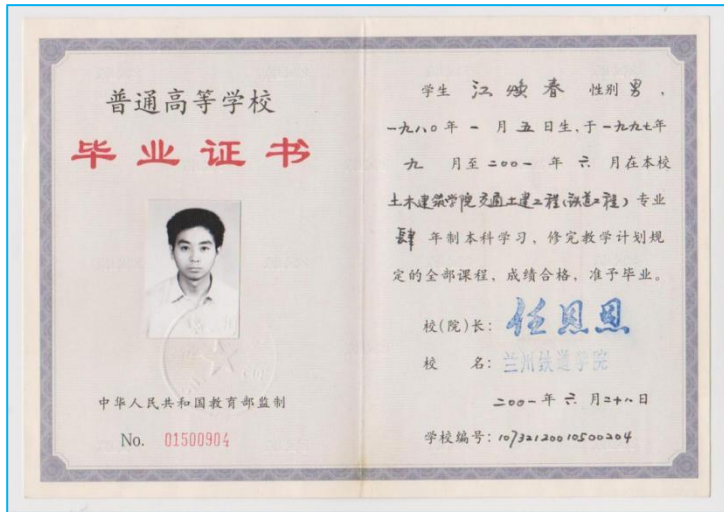 普通高等学校
毕业证书
中华人民共和国教育部监制
No. 01500904
学生 江焕春 性别 男，
一九八〇年 一 月 五 日生，于一九九七年
九 月至二〇〇一 年 六 月在本校
土木建筑学院交通土建工程(铁道工程) 专业
肆 年制本科学习，修完教学计划规
定的全部课程，成绩合格，准予毕业。
校(院)长： 任恩恩
校 名： 兰州铁道学院
二〇〇一年 六 月二十八日
学校编号：10732120010500204